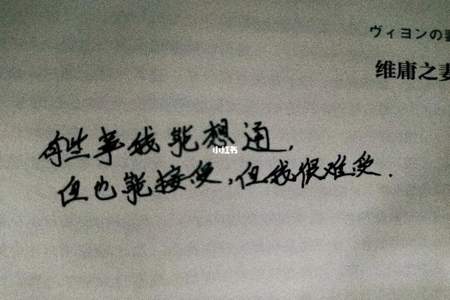 ヴィヨンの妻
维庸之妻
有些事我能想通,
小红书
但也能接受,但我很难受.